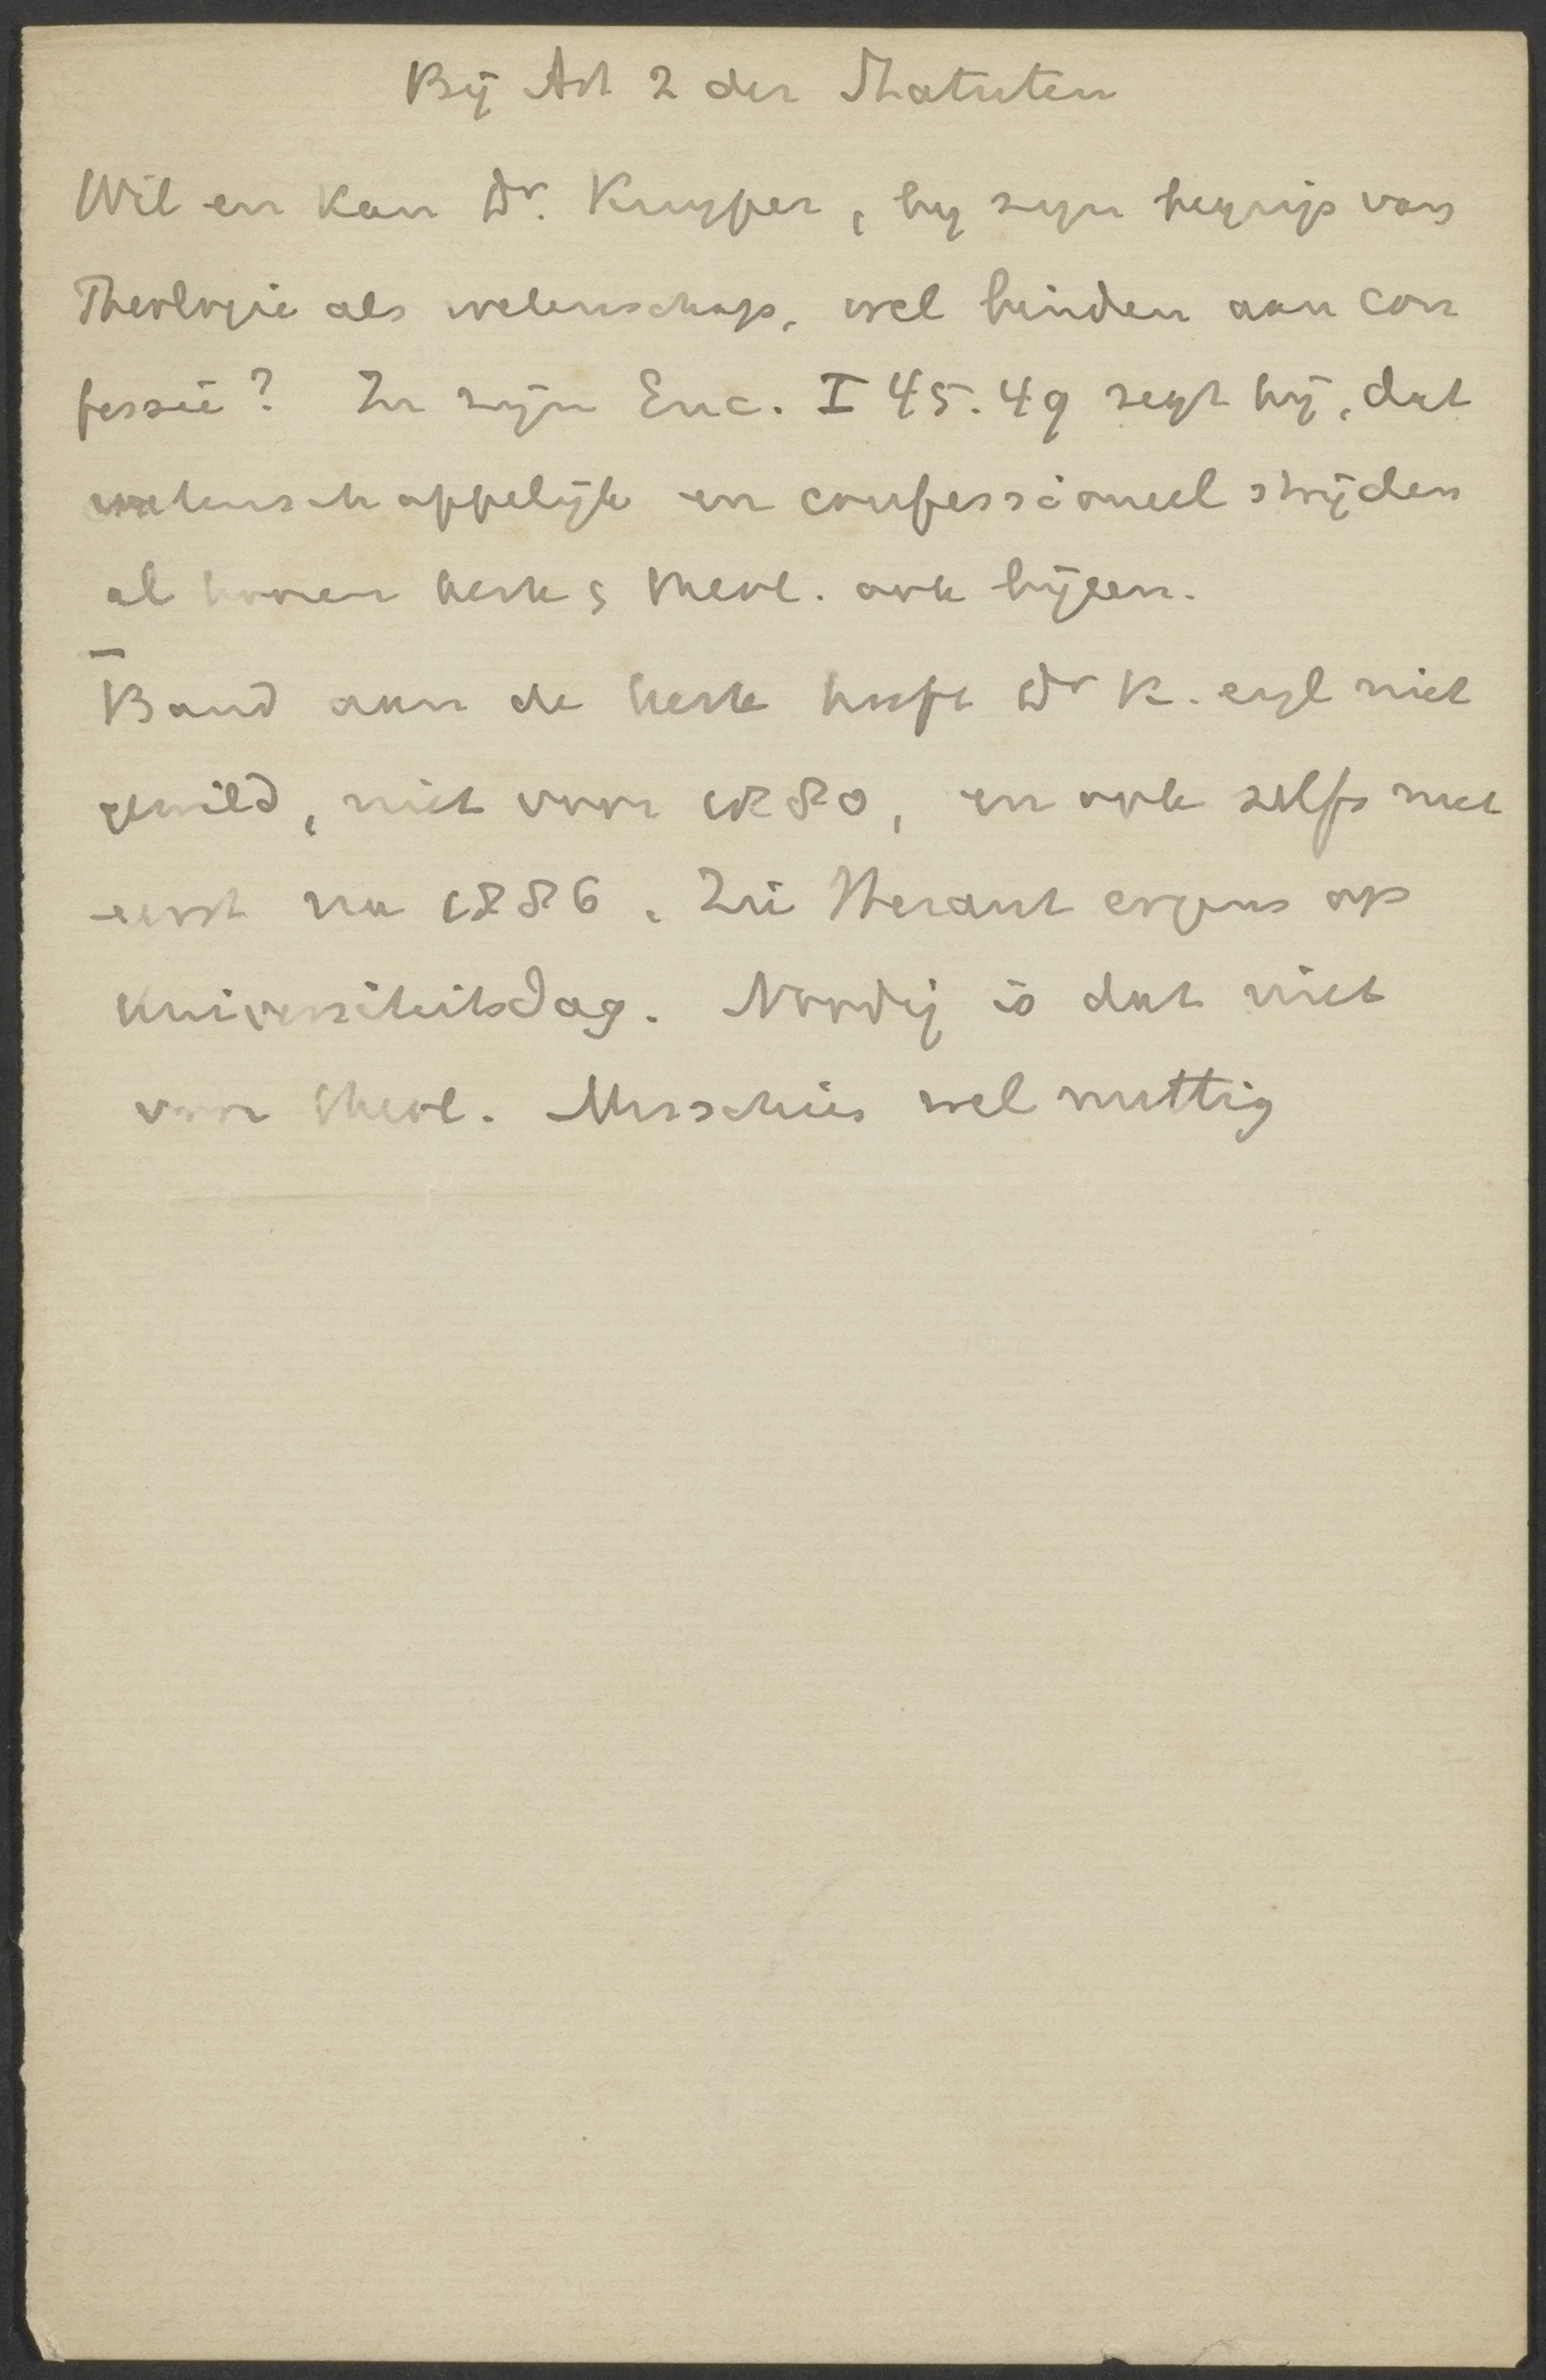 Bij Art 2 der Statuten
Wil en kan Dr. Kuyper, by zyn begrip van
Theologie als wetenschap, wel binden aan con
fessie? In zijn Enc. I 45. 49 zegt hij, dat
wetenschappelijk en confessioneel strijden
al horen kerk & theol. ook bijeen.
Band aan de kerk heeft Dr K. eigl niet
gewild, niet voor 1880, en ook zelfs niet
eerst na 1886. Zie Heraut ergens op
Universiteitsdag. Noodig is dat niet
voor theol. Misschien wel nuttig